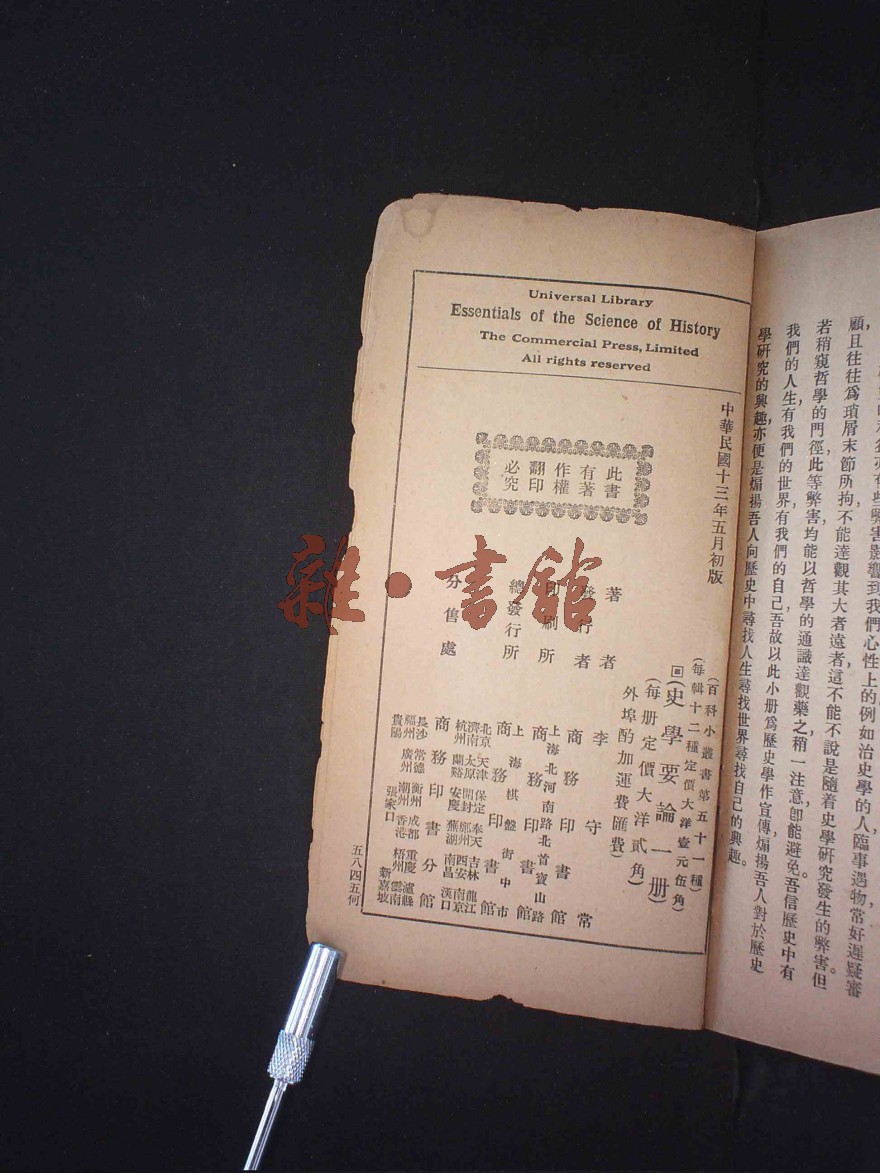 顧且往往爲瑣屑末節所拘不能達觀其大者遠者這不能不說是隨着史學研究發生的弊害但
若稍窺哲學的門徑此等弊害均能以哲學的通識達觀藥之稍一注意卽能避免吾信歷史中有
我們的人生有我們的世界有我們的自己吾故以此小册爲歷史學作宣傳煽揚吾人對於歷史
學研究的興趣亦便是煽揚吾人向歷史中尋找人生尋找世界尋找自己的興趣。
Universal Library
Essentials of the Science of History
The Commercial Press, Limited
All rights reserved
中華民國十三年五月初版
此書
有著
作權
翻印
必究
(百科小叢書第五十一種)
(每輯十二種定價大洋壹元伍角)
(史學要論一册)
(每册定價大洋貳角)
外埠酌加運費匯費)
著者 李守常
發行者 商務印書館
印刷所 上海北河南路北首寶山路
商務印書館
總發行所 上海棋盤街中市
商務印書館
分售處 北京 天津 保定 奉天 吉林 龍江
濟南 太原 開封 鄭州 西安 南京
杭州 蘭谿 安慶 蕪湖 南昌 漢口
商務印書分館
長沙 常德 衡州 成都 重慶 瀘縣
福州 廣州 潮州 香港 梧州 雲南
貴陽 張家口 新嘉坡
五八四五何
雜·書館